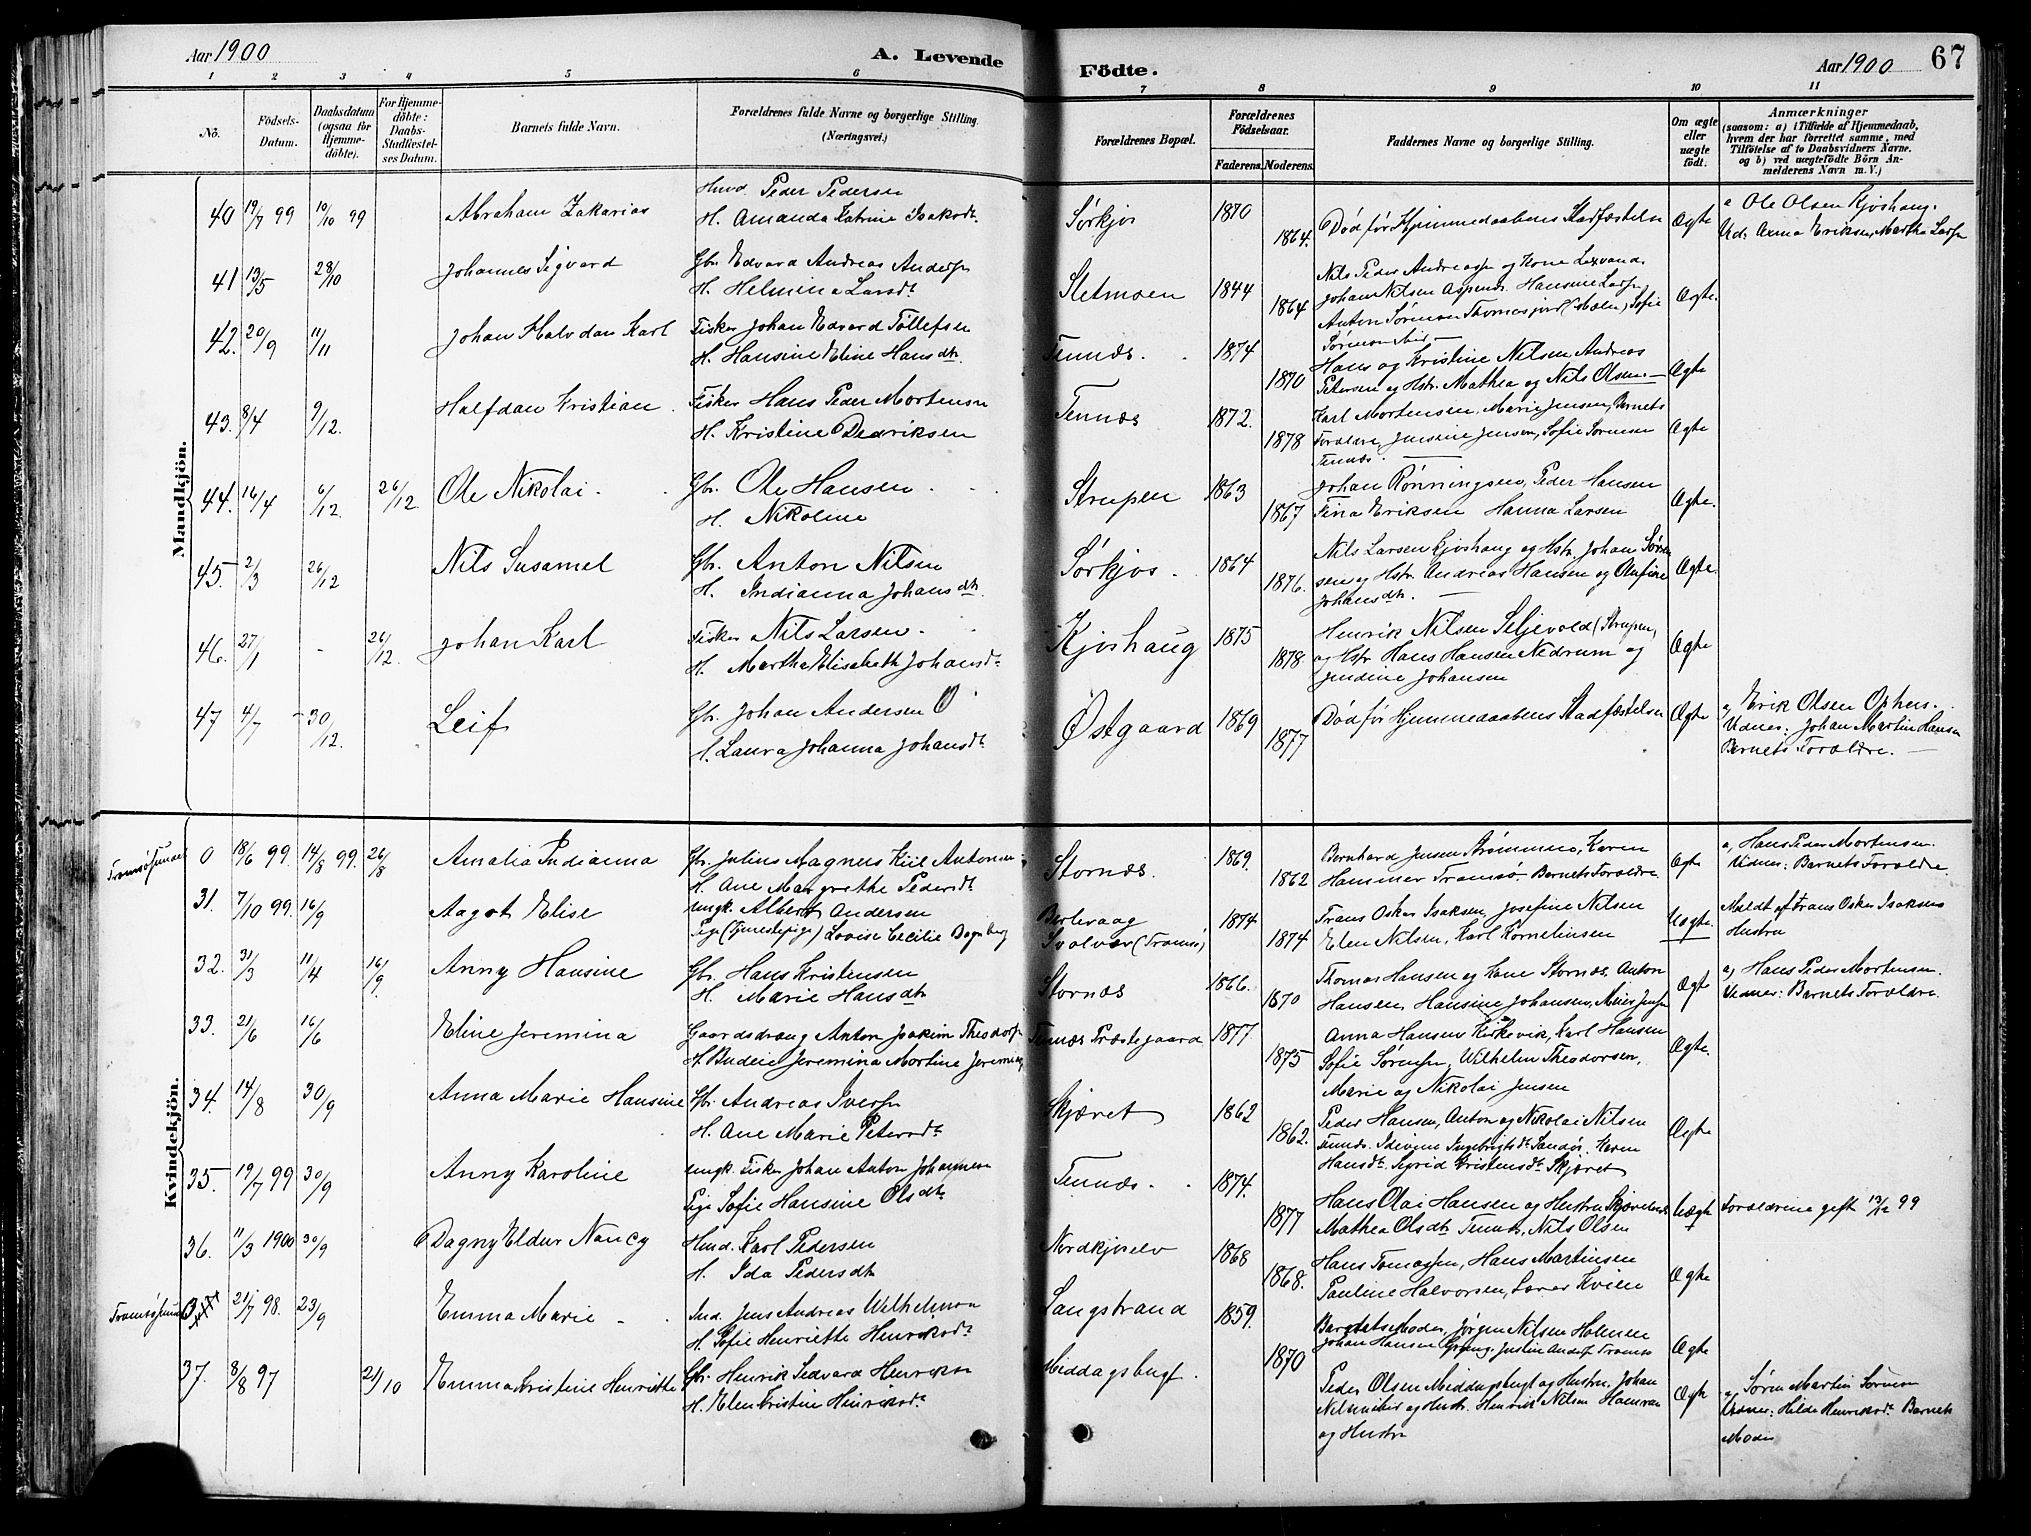 Aar 1900
A. Levende
Födte.
Aar 1900
67
1 2 3 4 5 6 7 8 9 10 11
No.
Födsels-
Datum.
Daabsdatum
(ogsaa for
Hjemme-
döbte).
For Hjemme-
döbte:
Daabs-
Stadfæstel-
ses Datum.
Barnets fulde Navn.
Forældrenes fulde Navne og borgerlige Stilling.
(Næringsvei.)
Forældrenes Bopæl.
Forældrenes
Födselsaar.
Faderens. Moderens.
Faddernes Navne og borgerlige Stilling.
Om ægte
eller
uægte
födt.
Anmærkninger
(saasom: a) i Tilfælde af Hjemmedaab,
hvem der har forrettet samme, med
Tilföielse af to Daabsvidners Navne.
og b) ved uægtefödte Börn An-
melderens Navn m. V.)
Mandkjön.
40 19/7 99 10/10 99 Abraham Zakarias
Peder Pedersen
H. Amanda Katrine Isaksdt.
Sørkjos 1870 1864. Død før Hjemmedaabens Stadfæstelse Ægte
a Ole Olsen Kjoshaug.
Vid: Anna Eriksen, Martha Larsn
41 13/5 28/10 Johannes Sigvard
Gbr. Edvard Andreas Andersn
H. Helmina Larsdt
Sletmoen 1844 1864 Ægte.
Nils Peder Andreassn og Kone
Johan Nilsen Aspenes. Hansine Larsn
Anton Sørensen Sofie
Sørensen ibid
42. 20/9 11/11 Johan Halvdan Karl
Fisker Johan Edvard Tollefsen
H. Hansine Eline Hansdtr.
Tennæs. 1874 1870 Ægte
Hans og Kristine Nilsen, Andreas
Petersen og Hstr. Mathea og Nils Olsen.
43. 8/4 9/12. Halfdan Kristian.
Fisker Hans Peder Mortensn
H. Kristine Dedriksen
Tennæs 1872. 1878 Ægte
Karl Mortensen, Marie Jensen, Barnets
Forældre, Jensine Jensen, Sofie Sørensen
Tennæs.
44. 16/4 6/12. 26/12 Ole Nikolai.
Gbr. Ole Hansen
H. Nikoline
Strupen 1863 1867 Ægte.
Johan Rønningsen, Peder Hansen
Fina Eriksen Hanna Larsen
45. 2/3 26/12 Nils Susamel
Gbr. Anton Nilsen
H. Indianna Johansdtr.
Sørkjos. 1864 1876. Ægte.
Nils Larsen Kjoshaug og Hstr. Johan Søren
sen og Hstr. Andreas Hansen og Anfine
Johansdtr.
46. 27/1 - 26/12. Johan Karl
Fisker Nils Larsen.
H. Marthe Elisabeth Johansdt
Kjoshaug 1875 1878. Ægte
Henrik Nilsen Seljevold (Strupen,
og Hstr. Hans Hansen Nedrum og
Jendine Johansen
47 4/7 30/12. Leif
Gbr. Johan Andersen Ø
H. Laura Johanna Johansdt
Østgaard 1869 1877 Død før Hjemmedaabens Stadfæstelse Ægte
a, Erik Olsen Ophus.
Vidner: Johan Martin Hansen
Barnets Forældre.
Kvindekjön.
Tromsøsundet 0 18/6 99. 14/8 99. 26/8 Amalia Indianna
Gbr. Julius Magnus Kiil Antonsen
H. Ane Margrethe Pedersdt
Stornæs. 1869. 1862 Ægte
Bernhard Jensen Strømmen, Karen
Hammer Tromsø. Barnets Forældre.
a, Hans Peder Mortensen.
Vidner: Barnets Forældre.
31. 7/10 99. 16/9 Aagot Elise
Ungk. Albert Andersen
Pige (Tjenestepige) Lovise Cecilie Bognberg
Berlevaag
Svolvær (Tromsø) 1874 1874 Uægte.
Frans Oskar Isaksen, Josefine Nilsen
Elen Nilsen, Karl Kornelinsen
Meldt af Frans Oskar Isaksens
Hustru
32. 31/3 11/4 16/9. Anny Hansine
Gbr. Hans Kristensen
H. Marie Hansdtr
Stornæs 1866. 1870 Ægte
Thomas Hansen og Lene Stornæs, Anton
Hansen Hansine Johansen,
a, Hans Peder Mortensen.
Vidner: Barnets Forældre.
33. 21/6 16/6 Eline Jeremina
Gaardsdreng Anton Joakim Theodorsn
H. Budeie Jeremina Mortine Jeremias
Tennæs Præstegaard 1877 1875 Ægte.
Anna Hansen Kirkevik, Karl Hansen
Sofie Sørensn, Wilhelm Theodorsen,
Marie og Nikolai Jensen
34. 14/8 30/9 Anna Marie Hansine
Gbr. Andreas Iversn
H. Ane Marie Petersdt
Skjæret 1862 1862. Ægte
Peder Hansen, Anton og Nikolai Nilsen
Tennæs. Ingebrigtsdt. Sandør, Karen
Hansdt. Sigrid Kristensdt. Skjæret
35. 19/7 99 30/9 Anny Karoline
Ungk. Fisker Johan Anton Johannesen
Pige Sofie Hansine Olsdtr
Tennæs. 1874. 1877 Uægte
Hans Olai Hansen og Hustru
Mathea Olsdtr Tennes, Nils Olsen
Forældrene gift 13/12 99
36. 11/3 1900 30/9 Dagny Eldur Nancy
Karl Pedersen
H. Ida Pedersdtr
Nordkjoselv 1868 1868. Ægte
Hans Tomassen, Hans Martinsen
Pauline Halvorsen, Kvien
Tromsøsund 21/7 98. 23/9 Emma Marie
Ind. Jens Andreas Wilhelmsen
H. Sofie Henriette Henriksdt
Langstrand 1859. 1870 Ægte
Barnets Moder, Jørgen Nilsen Holmen
Johan Hansen Tromsø
37. 8/8 97 21/10 Emma Kristine Henriette
Gbr. Henrik Sedvard Henriksn
H. Elen Kristine Henriksdt.
Middagsbugt. Ægte
Peder Olsen Middagsbugt og Hustru, Johan
Nilsen ibid og Hustr. Henrik Nilsen
og Hustru
a, Søren Martin Sørensen
Vidner: Hilda Henriksdt. Barnets
Moder